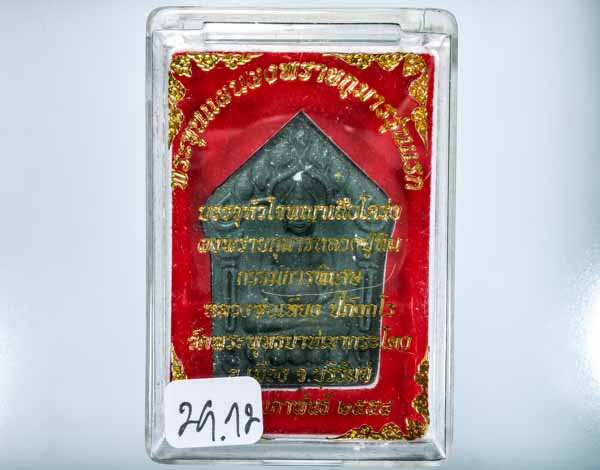 พระขุนแผนผงพรายกุมารรุ่นแรก
บรรจุหัวใจพญาเสือโคร่ง
ผงพรายกุมารหลวงปู่ทิม
กรรมการพิเศษ
หลวงพ่อเหียง ปภังกโร
วัดพระพุทธบาทเขากระโดง
อ.เมือง จ.บุรีรัมย์
๒๕๕๔
ริ29.12